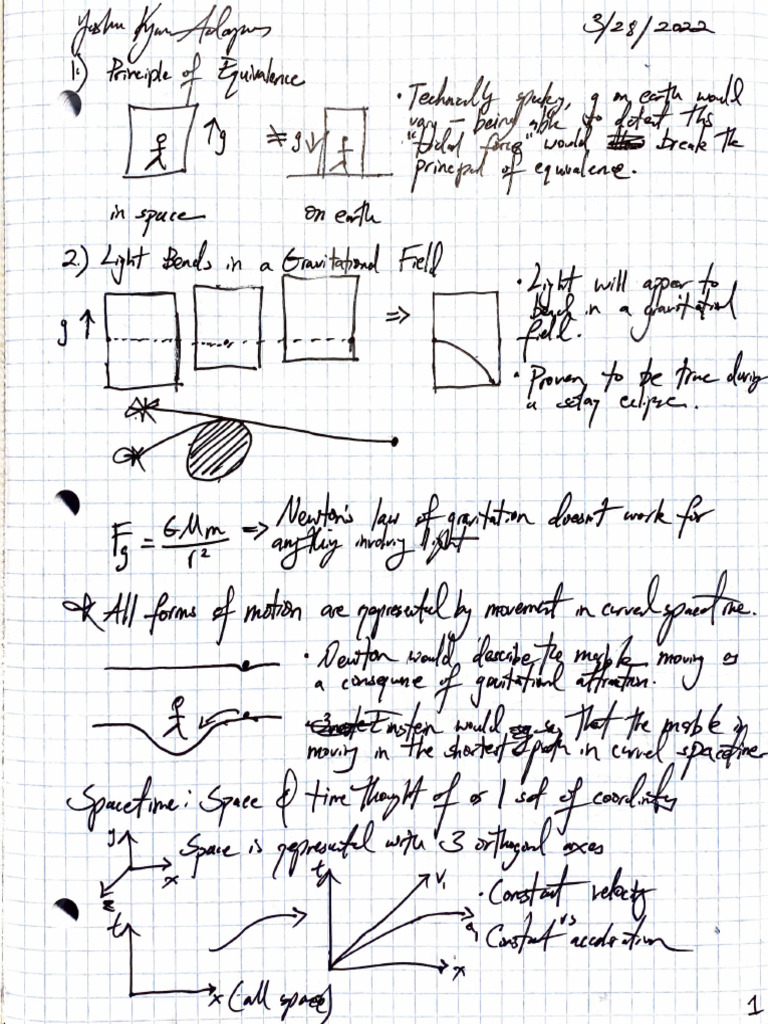 3/28/2022
1.) Principle of Equivalence
↑g
≠ g↓
in space
on earth
• Technically speaking, g on earth would
vary – being able to detect this
"tidal force" would break the
principal of equivalence.
2.) Light Bends in a Gravitational Field
g ↑
=>
• Light will appear to
bend in a gravitational
field.
• Proven to be true during
a solay eclipse.
Fg = GMm/r² => Newton's law of gravitation doesn't work for
anything involving light
* All forms of motion are represented by movement in curved spacetime.
• Newton would describe the marble moving as
a consequence of gravitational attraction.
Einstein would say that the marble is
moving in the shortest path in curved spacetime
Spacetime: Space & time thought of as 1 set of coordinates
y
x
z
Space is represented with 3 orthogonal axes
t
x (all space)
t
V₁
a₁
x
• Constant velocity
vs
Constant acceleration
1